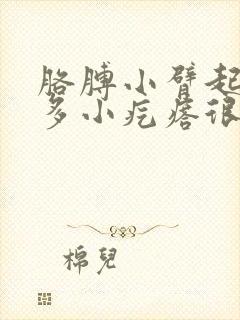 胳膊小臂起
多小疙瘩很
棉兒